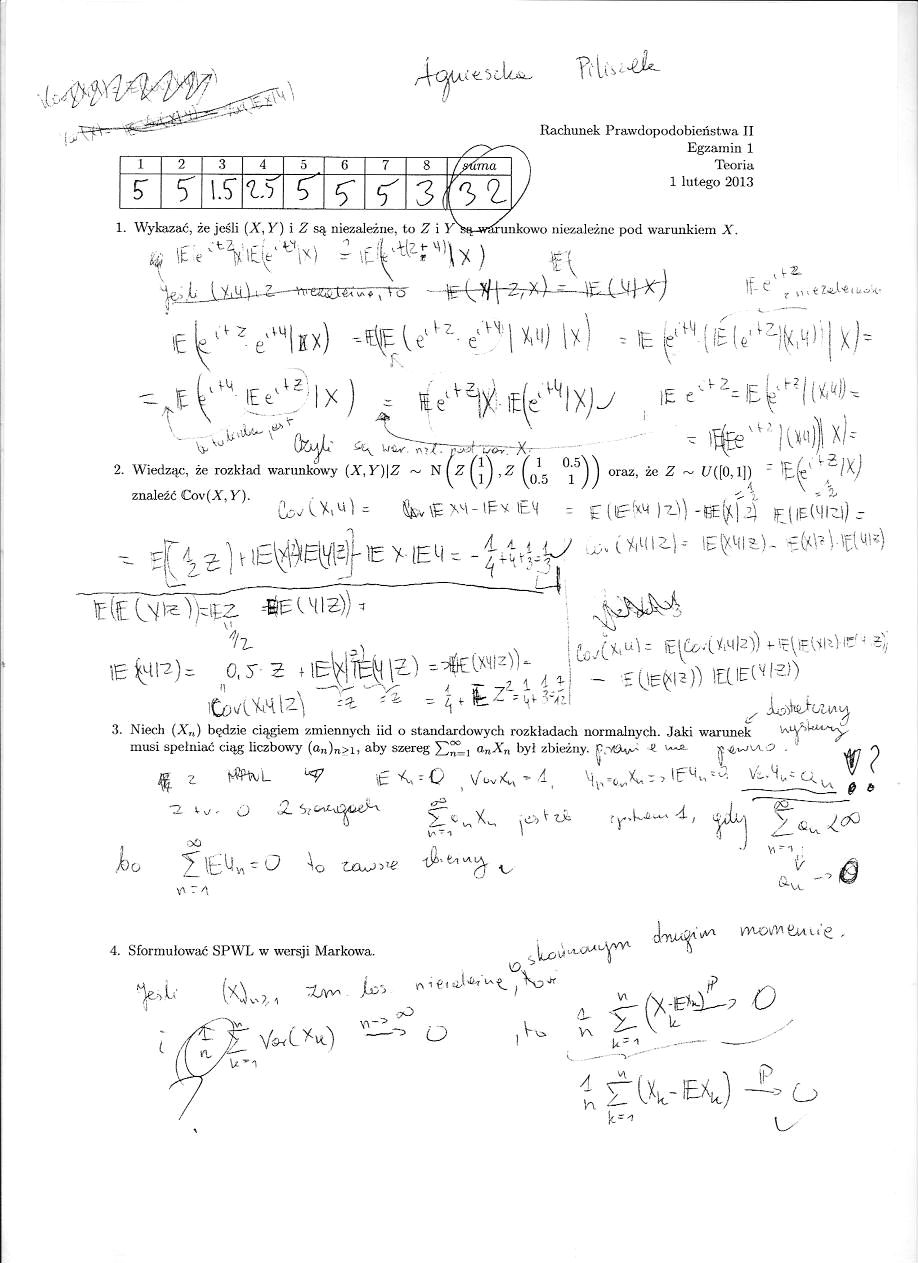 Agnieszka
Rachunek Prawdopodobieństwa II
Egzamin 1
Teoria
1 lutego 2013
1 2 3 4 5 6 7 8 suma
5 5 1.5 2.5 5 5 5 3 32
1. Wykazać, że jeśli (X, Y) i Z są niezależne, to Z i Y są warunkowo niezależne pod warunkiem X.
𝔼(e^{itZ}|X)𝔼(e^{itY}|X) ?= 𝔼(e^{it(Z+Y)}|X)
Jeśli (X,Y), Z niezależne, to 𝔼(Y|Z,X) = 𝔼(Y|X)
𝔼e^{itZ} z niezależności
𝔼(e^{itZ} e^{itY}|X) = 𝔼(𝔼(e^{itZ} · e^{itY}|X,Y)|X) = 𝔼(e^{itY}(𝔼(e^{itZ}|(X,Y))|X) =
= 𝔼(e^{itY} 𝔼e^{itZ}|X) = 𝔼(e^{itZ}|X) · 𝔼(e^{itY}|X) ✓ 𝔼e^{itZ} = 𝔼(e^{itZ}|(X,Y)) =
= 𝔼(𝔼e^{itZ}|(X,Y)|X) =
Czyli są war. nzl. pod war. X. = 𝔼(e^{itZ}|X)
2. Wiedząc, że rozkład warunkowy (X, Y)|Z ∼ N(Z(1 1), Z(1 0.5 0.5 1)) oraz, że Z ∼ U([0, 1])
znaleźć ℂov(X, Y).
Cov(X,Y) = 𝔼XY - 𝔼X 𝔼Y = 𝔼(𝔼(XY|Z)) - 𝔼(𝔼(X|Z)) 𝔼(𝔼(Y|Z)) =
= 𝔼[1/2 Z] + 𝔼[𝔼(X|Z)𝔼(Y|Z)] - 𝔼X 𝔼Y = -1/4+1/4+1/3=1/3 ✓ Cov(X,Y|Z) = 𝔼(XY|Z) - 𝔼(X|Z)·𝔼(Y|Z)
𝔼(𝔼(X|Z)) = 𝔼Z = 𝔼(𝔼(Y|Z)) =
1/2
𝔼(XY|Z) = 0,5·Z + 𝔼(X|Z)𝔼(Y|Z) => 𝔼(𝔼(XY|Z)) =
Cov(X,Y|Z) =Z =Z = 1/4 + 𝔼Z² = 1/4+1/3=7/12
Cov(X,Y) = 𝔼(Cov(X,Y|Z)) + 𝔼(𝔼(X|Z)𝔼(Y|Z))
- 𝔼(𝔼(X|Z)) 𝔼(𝔼(Y|Z))
3. Niech (Xₙ) będzie ciągiem zmiennych iid o standardowych rozkładach normalnych. Jaki warunek
musi spełniać ciąg liczbowy (aₙ)ₙ≥₁, aby szereg ∑ₙ₌₁^∞ aₙXₙ był zbieżny.
dostateczny
pewno.
z MPWL 𝔼Xₙ=0, VarXₙ=1, Yₙ=aₙXₙ => 𝔼Yₙ=0 VarYₙ=aₙ ?
z tw. o 2 szeregach ∑ₙ₌₁^∞ aₙXₙ jest zb z prawem 1, gdy ∑ₙ₌₁^∞ aₙ<∞
bo ∑ₙ₌₁^∞ 𝔼Yₙ=0 to zawsze zbieżny
aₙ → 0
4. Sformułować SPWL w wersji Markowa.
o skończonym drugim momencie,
Jeśli (X)ₙ≥₁ zm. los. niezależne,
i 1/n ∑ₖ₌₁ⁿ Var(Xₖ) n→∞ → 0, to 1/n ∑ₖ₌₁ⁿ (Xₖ-𝔼Xₖ) ℙ→ 0
?
1/n ∑ₖ₌₁ⁿ (Xₖ-𝔼Xₖ) ℙ→ 0
✓